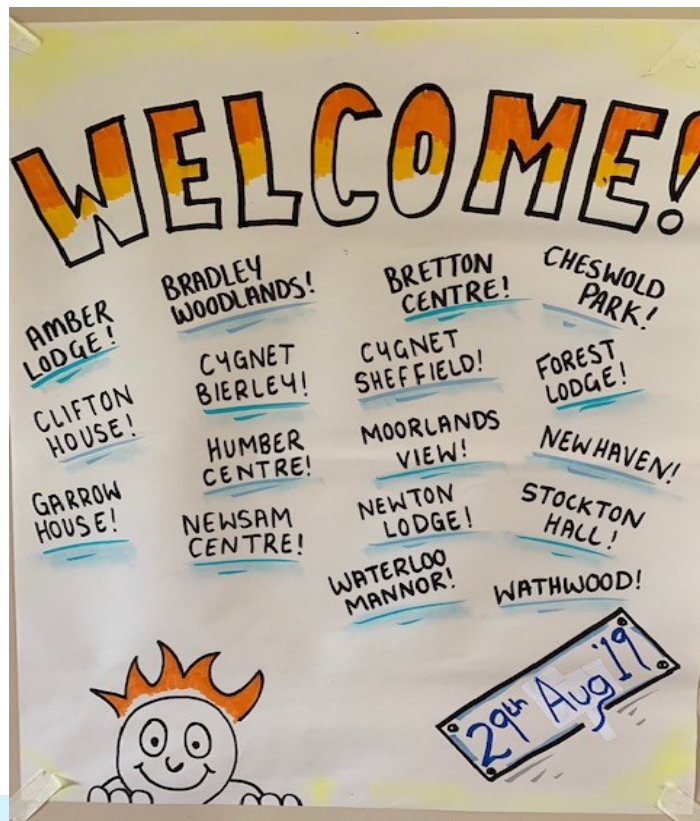 WELCOME!
AMBER
LODGE!
CLIFTON
HOUSE!
GARROW
HOUSE!
BRADLEY
WOODLANDS!
CYGNET
BIERLEY!
HUMBER
CENTRE!
NEWSAM
CENTRE!
BRETTON
CENTRE!
CYGNET
SHEFFIELD!
MOORLANDS
VIEW!
NEWTON
LODGE!
WATERLOO
MANNOR!
CHESWOLD
PARK!
FOREST
LODGE!
NEWHAVEN!
STOCKTON
HALL!
WATHWOOD!
29th Aug '19